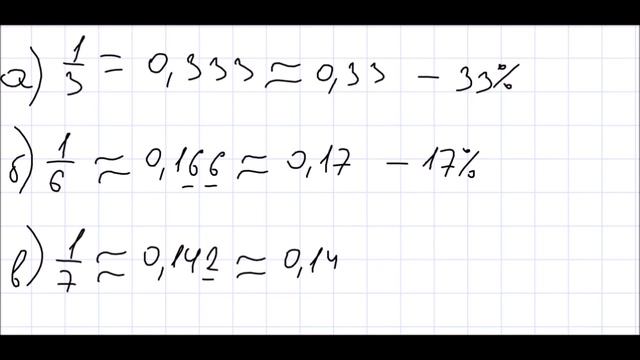 а) 1/3 = 0,333 ≈ 0,33 – 33%
б) 1/6 ≈ 0,166 ≈ 0,17 – 17%
в) 1/7 ≈ 0,142 ≈ 0,14